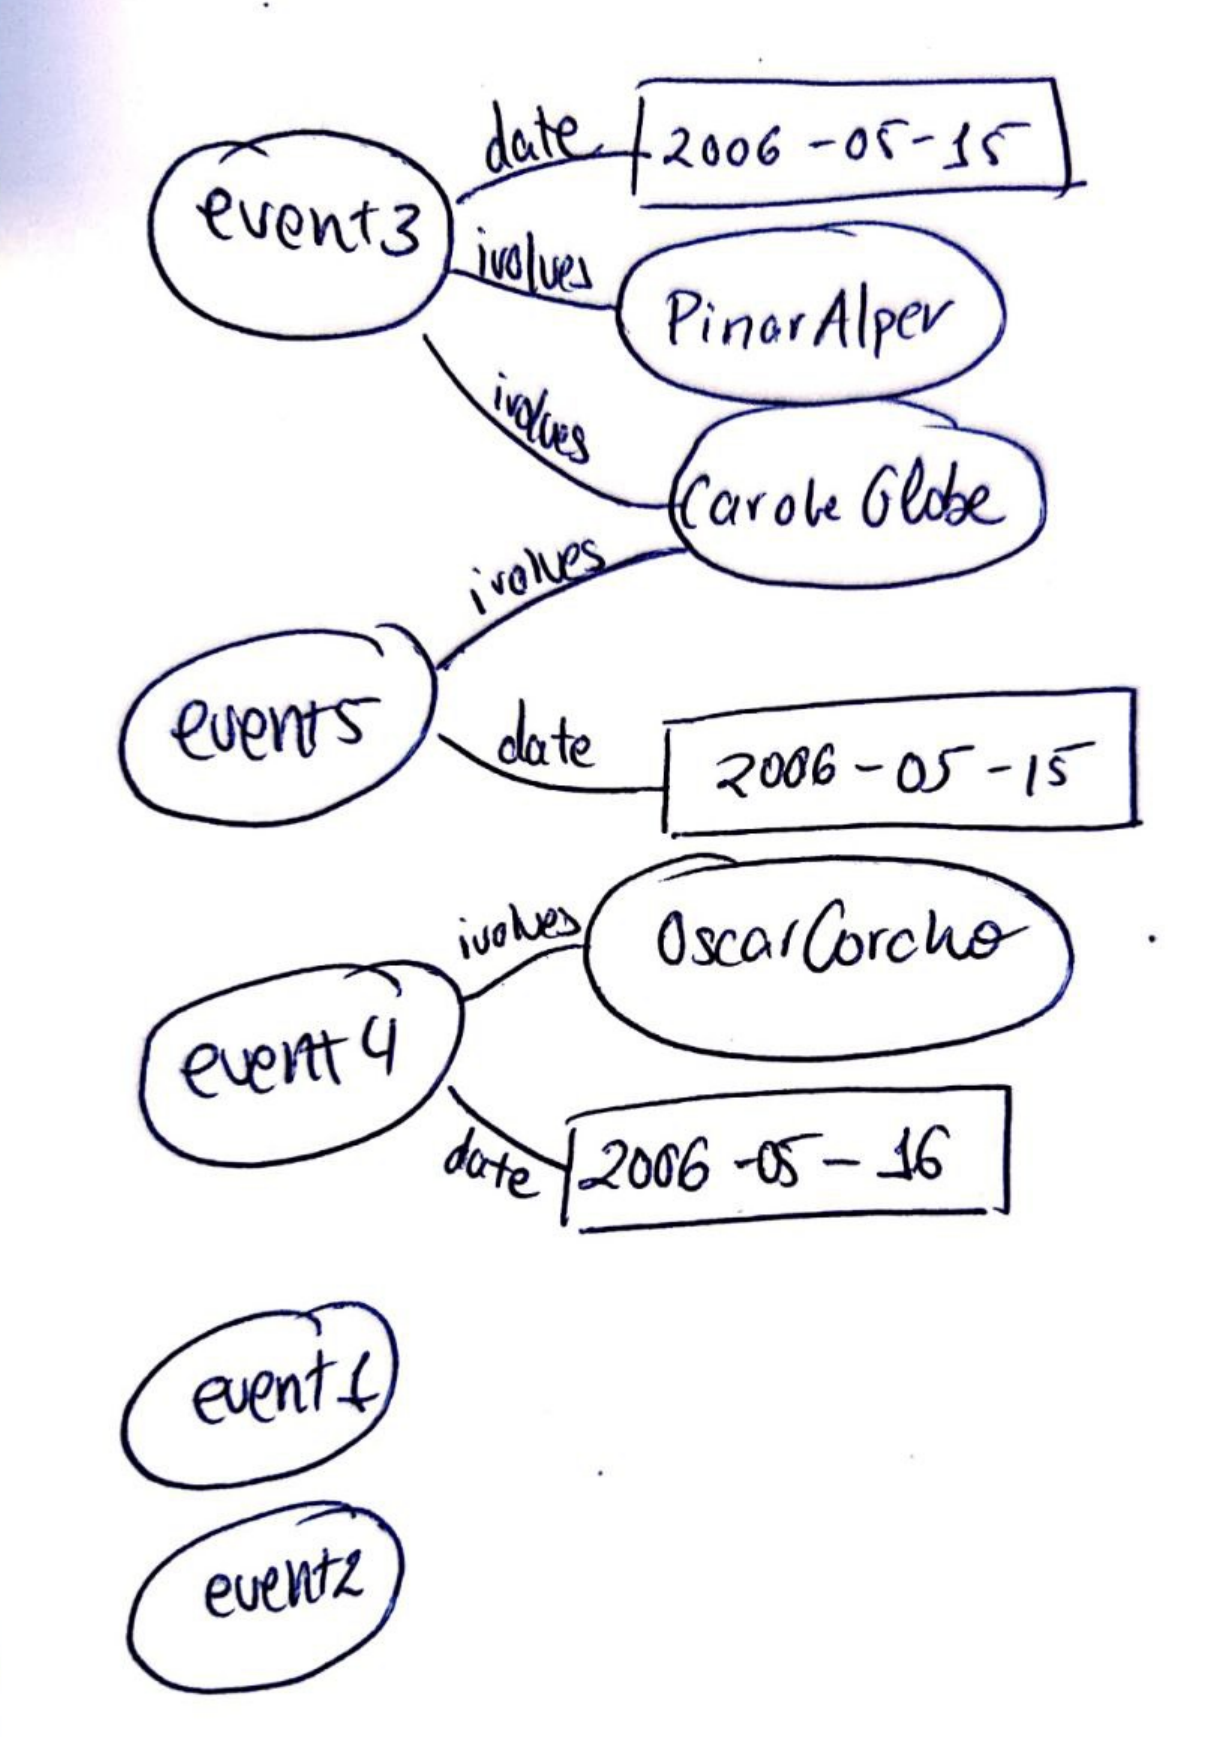 date
2006-05-15
event3
ivolves
PinarAlper
ivolves
Carole Globe
ivolves
event5
date
2006-05-15
ivolves
OscarCorcho
event4
date
2006-05-16
event1
event2